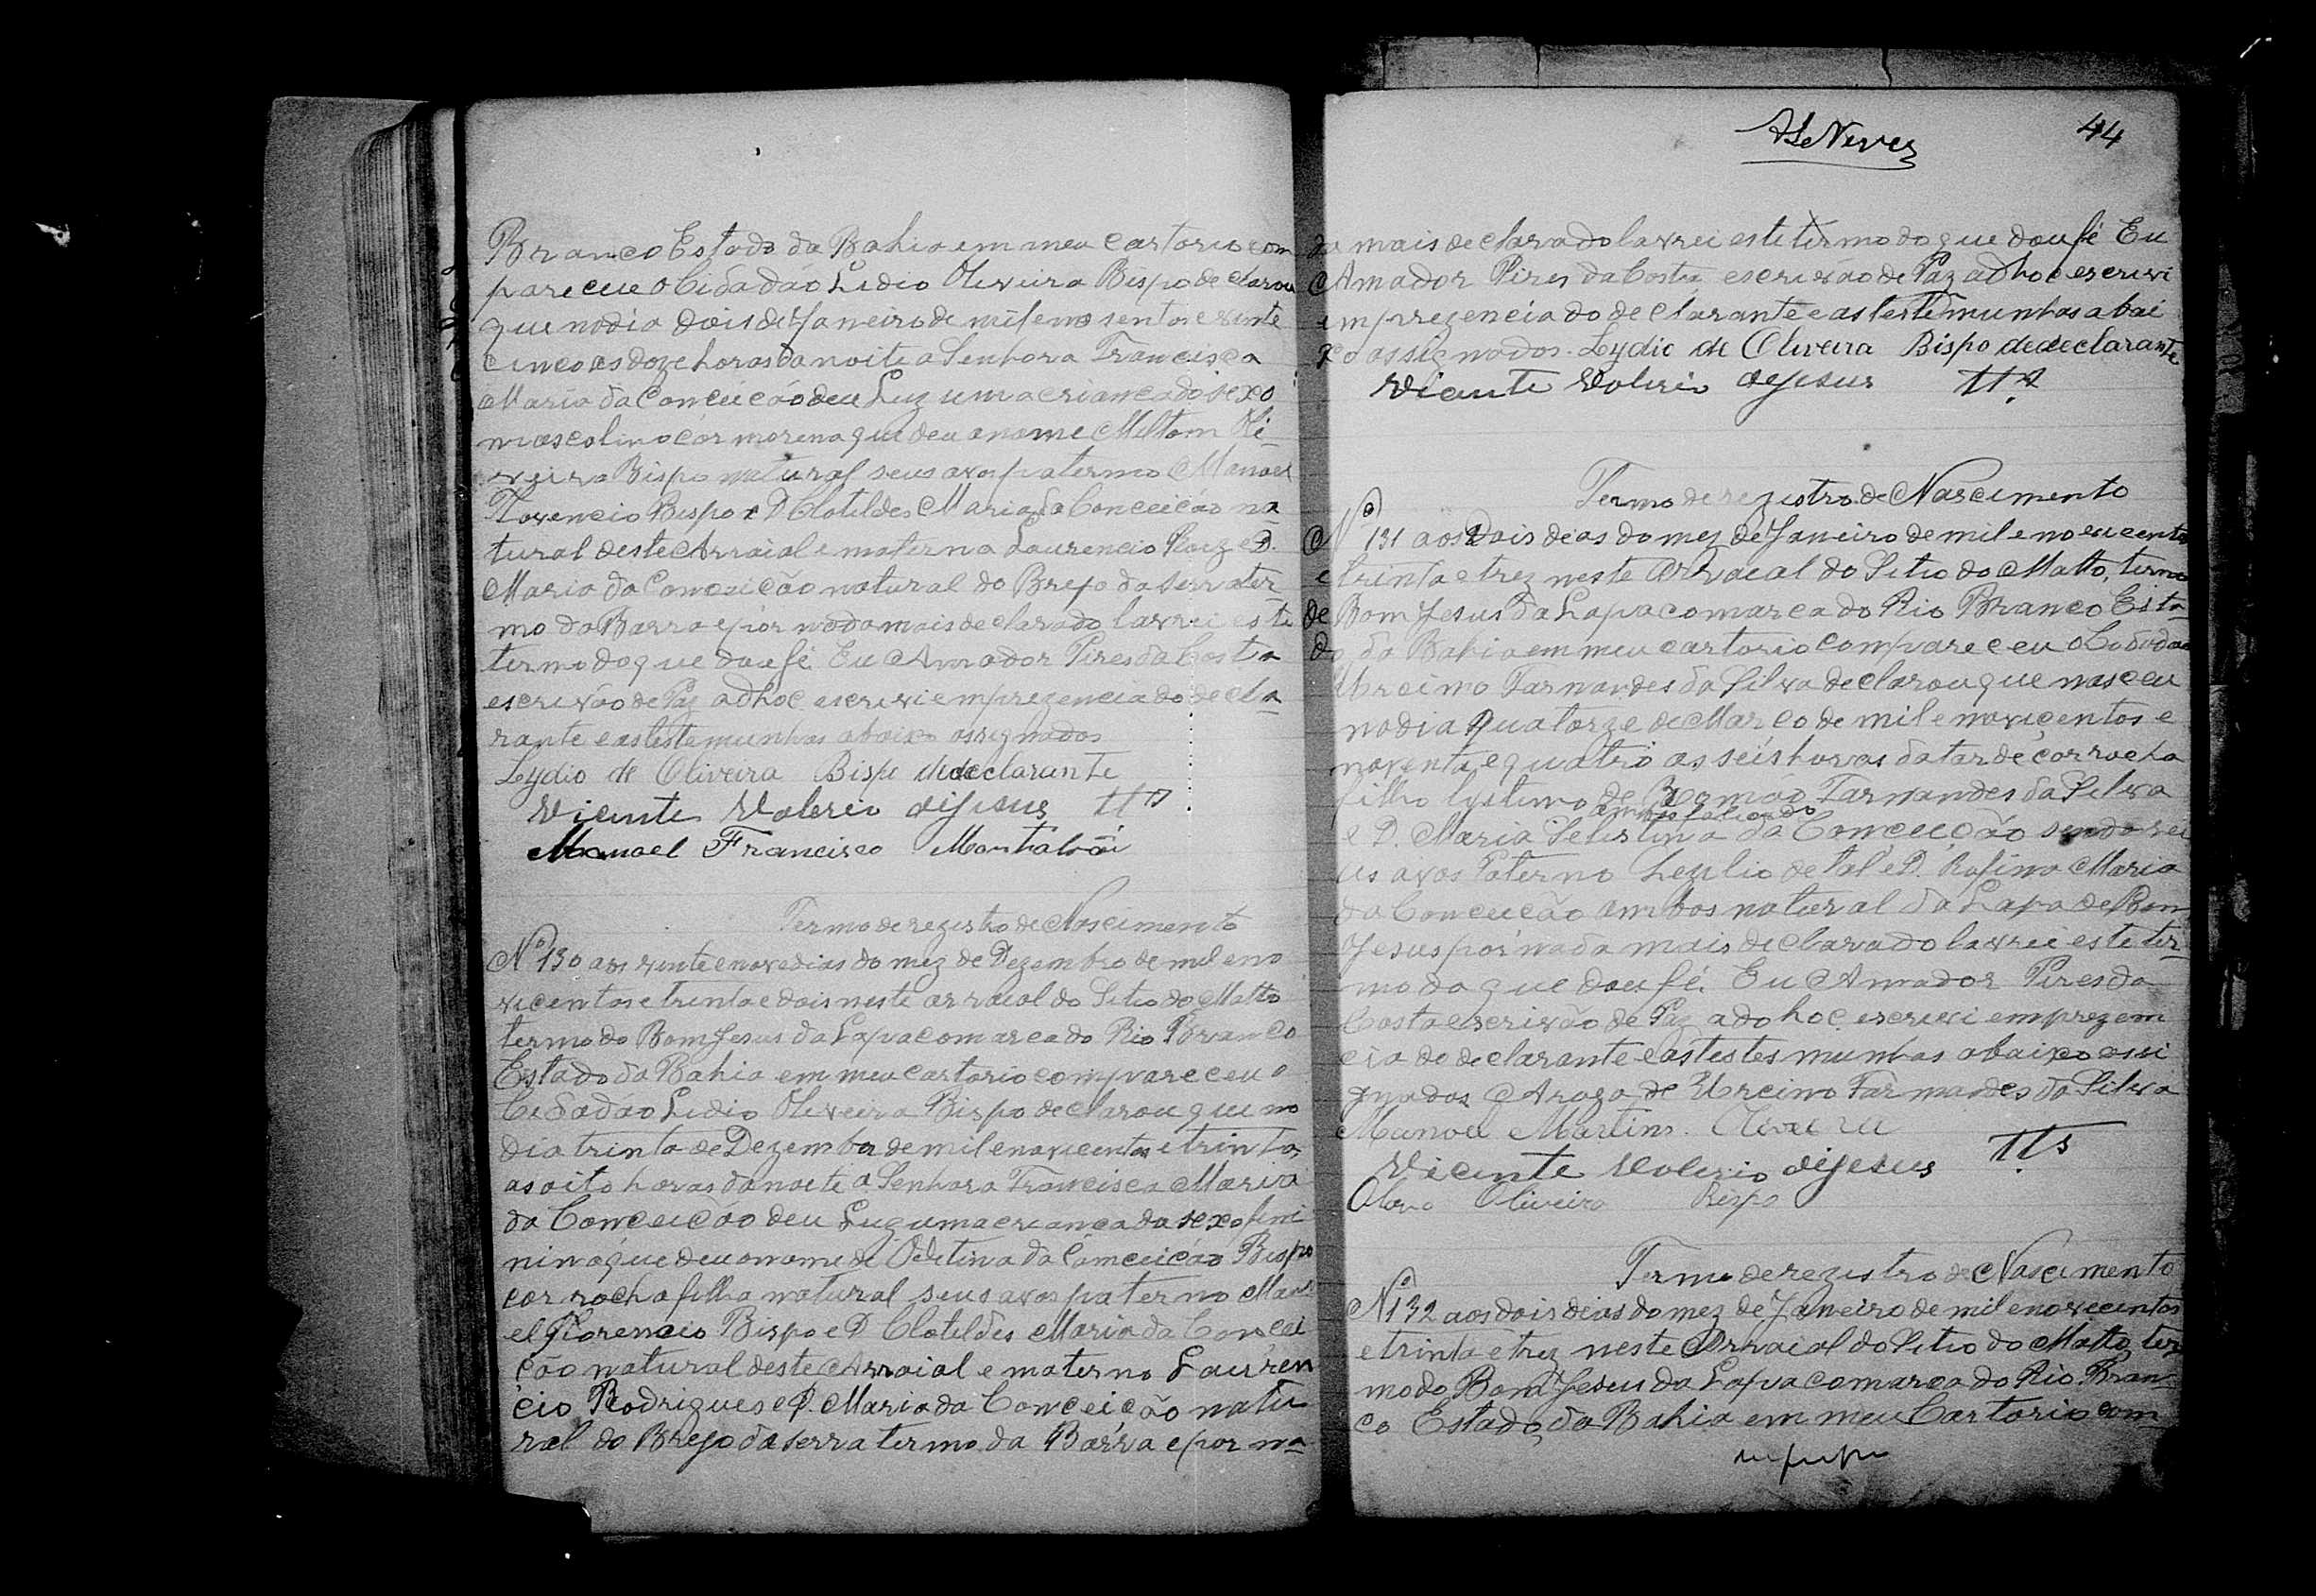 Branco Estado da Bahia em meu cartorio com
pareceu o Cidadão Lidio Oliveira Bispo declarou
que no dia dois de Janeiro de mil e nove sentos e vinte
cinco as doze horas da noite a Senhora Francisca
Maria da Conceicão deu Luz uma crianca do sexo
mascolino cor morena que deu a nome Miltom Oli-
veira Bispo natural seus avos paterno Manoel
Florencio Bispo e D Clotildes Maria da Conceicão na
tural deste Arraial e materno Laurencio Roiz e D.
Maria da Conceicão natural do Brejo da Serra ter
mo da Barra e por nada mais declarado lavrei este
termo do que dou fé Eu Amador Pires da Costa
escrivão de Paz adhoc escrevi em prezencia do decla
rante e as testemunhas abaixo assignados
Lydio de Oliveira Bispo de declarante
Vicente Valerio de Jesus TTs
Manoel Francisco
Termo de rezistro de Nascimento
Nº 130 aos vinte e nove dias do mez de Dezembro de mil eno
vicentos e trinta e dois neste arraial do Sitio do Matto
termo do Bom Jesus da Lapa comarca do Rio Branco
Estado da Bahia em meu cartorio compareceu o
Cidadão Lidio Oliveira Bispo declarou que no
dia trinta de Dezembro de mil e novicentos e trinta
as oito horas da noite a Senhora Francisca Maria
da Conceicão deu Luz uma crianca da sexo fimi
nino que deu o nome de Odetina da Comceicão Bispo
cor rocha filha natural seus avos paterno Mano
el Florencio Bispo e D Clotildes Maria da Concei
ção natural deste Arraial e materno Lauren
cio Rodrigues e D. Maria da Conceicão natu
ral do Brejo da Serra termo da Barra e por na
44
A S Neves
da mais declarado lavrei este termo do que dou fé Eu
Amador Pires da Costa escrivão de Paz adhoc escrevi
em prezencia do declarante e as testemunhas abai
xo assignados. Lydio de Oliveira Bispo de declarante
Vicente Valerio de Jesus TTs
Termo de rezistro de Nascimento
Nº 131 aos Dois dias do mez de Janeiro de mil e novicentos
e trinta e trez neste Arraial do Sitio do Matto, termo
de Bom Jesus da Lapa comarca do Rio Branco Esta-
do da Bahia em meu cartorio compareceu o Cidadão
Urcimo Farnandes da Silva declarou que nasceu
no dia quatorze de Março de mil e novicentos e
noventa e quatro as seis horas da tarde cor rocha
filho lystimo de Romão Farnandes da Silva
e D. Maria Selestina da Conceicão sendo se
us avos Paterno de Tal e D. Rufina Maria
da Conceicão ambos natural da Lapa de Bom
Jesus por nada mais declarado lavrei este ter-
mo do que dou fé. Eu Amador Pires da
Costa escrivão de Paz adohoc escrevi em prezem
cia do declarante e as testesmunhas abaixo assi
gnados Arogo de Urcino Farmandes da Silva
Manoel Martins Oliveira
Vicente Valerio de Jesus TTs
Olavo Oliveira Bispo
Termo de rezistro de Nascimento
Nº 132 aos dois dias do mez de Janeiro de mil e novecentos
e trinta e trez neste Arraial do Sitio do Matto ter
mo do Bom Jesus da Lapa comarca do Rio Bran-
co Estado da Bahia em meu Cartorio com-